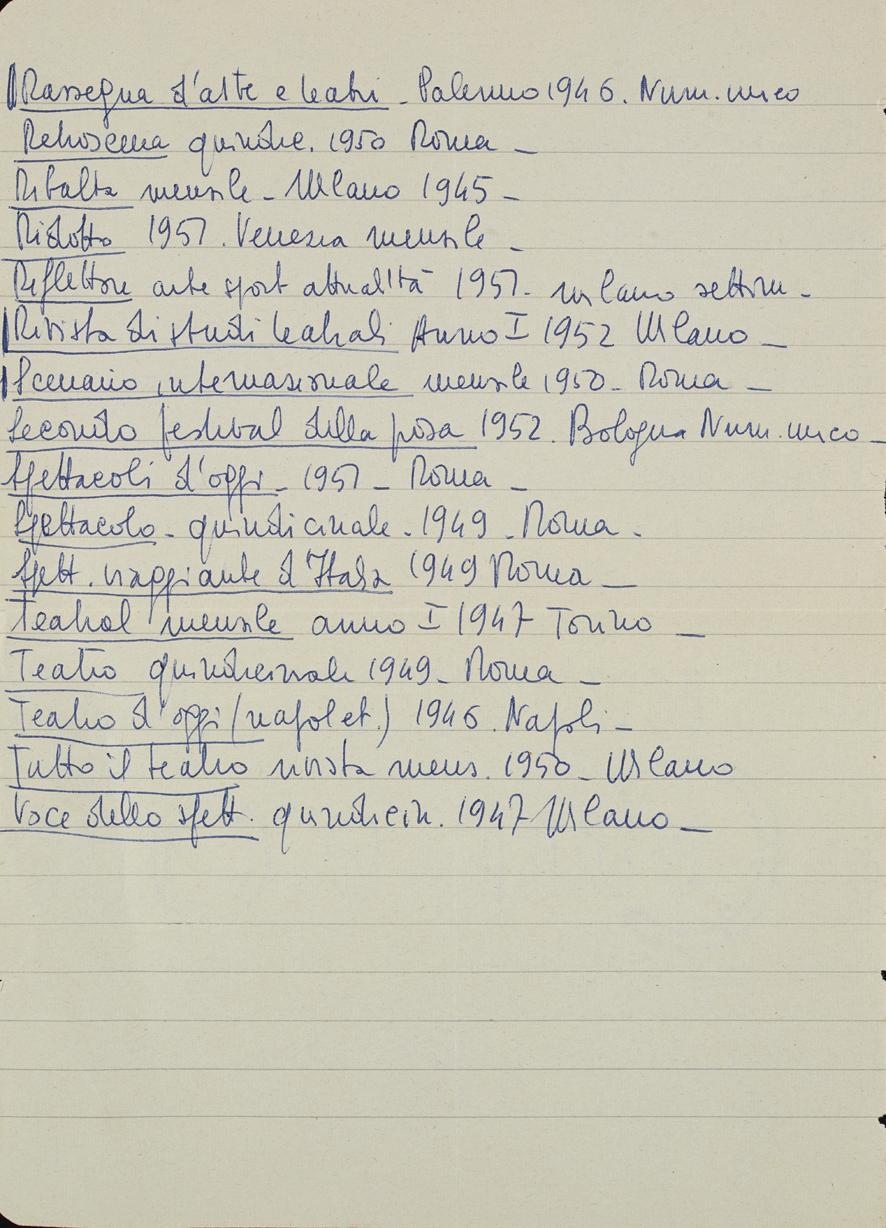 Rassegna d'arte e teatri - Palermo 1946. Num. unico
Retroscena quindic. 1950 Roma -
Ribalta mensile - Milano 1945 -
Ridotto 1951. Venezia mensile -
Riflettore arte sport attualità 1951. milano settim -
Rivista di studi teatrali Anno I 1952 Milano -
Scenario internazionale mensile 1950 - Roma -
Secondo festival della prosa 1952. Bologna Num. unico -
Spettacoli d'oggi - 1951 - Roma -
Spettacolo - quindicinale - 1949 - Roma -
Spett. viaggiante d'Italia 1949 Roma -
Teatral mensile anno I 1947 Torino -
Teatro quindicinale 1949 - Roma -
Teatro d'oggi (napolet.) 1946. Napoli -
Tutto il teatro rivista mens. 1950 - Milano
Voce dello spett. quindicin. 1947 Milano -